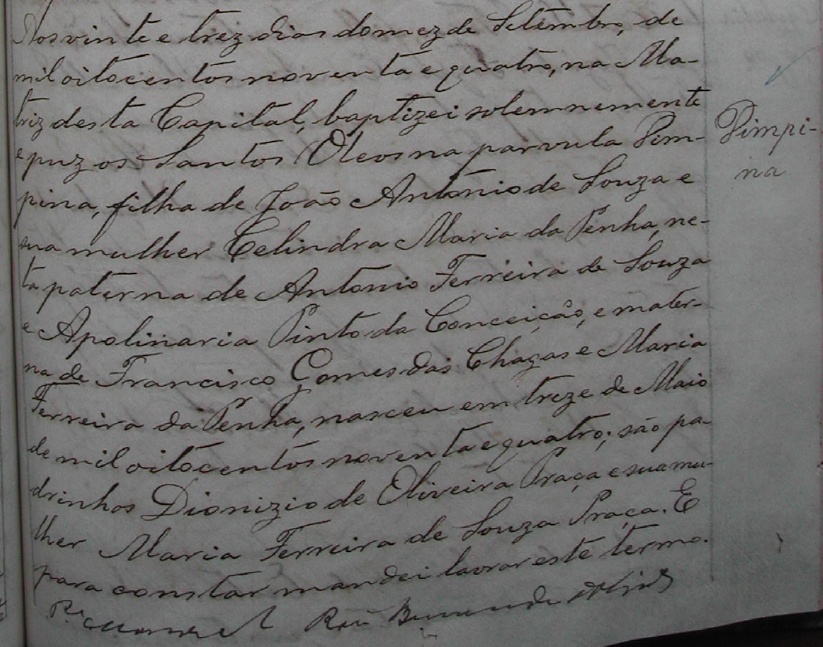 Aos vinte e trez dias do mez de Setembro, de
mil oitocentos noventa e quatro, na Ma-
triz desta Capital, baptizei solemnemente
e puz os Santos Óleos na parvula Pim-
pina, filha de João Antonio de Souza e
sua mulher Celindra Maria da Penha, ne-
ta paterna de Antonio Ferreira de Souza
e Apolinaria Pinto da Conceição, e mater-
na de Francisco Gomes das Chagas e Maria
Ferreira da Penha, nasceu em treze de Maio
de mil oitocentos noventa e quatro; são pa-
drinhos Dionizio de Oliveira Praça e sua mu-
lher Maria Ferreira de Souza Praça. E
para constar mandei lavrar este termo.
Pimpi-
na